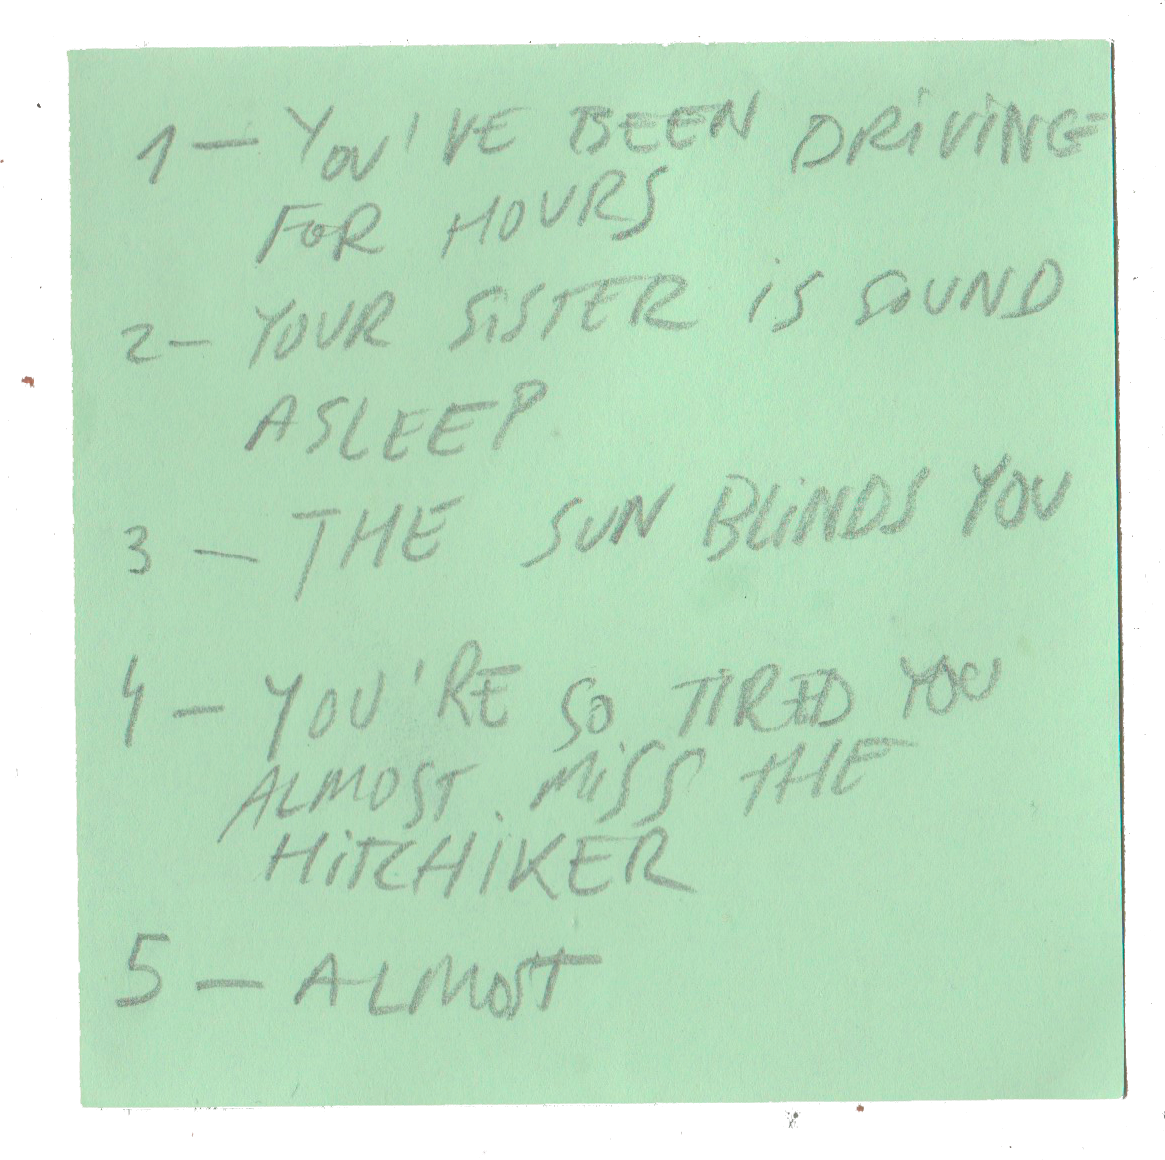 1 — YOU'VE BEEN DRiViNG
FOR HOURS
2 — YOUR SiSTER iS SOUND
ASLEEP
3 — THE SUN BLiNDS YOU
4 — YOU'RE SO TIRED YOU
ALMOST MiSS THE
HiTCHiKER
5 — ALMOST